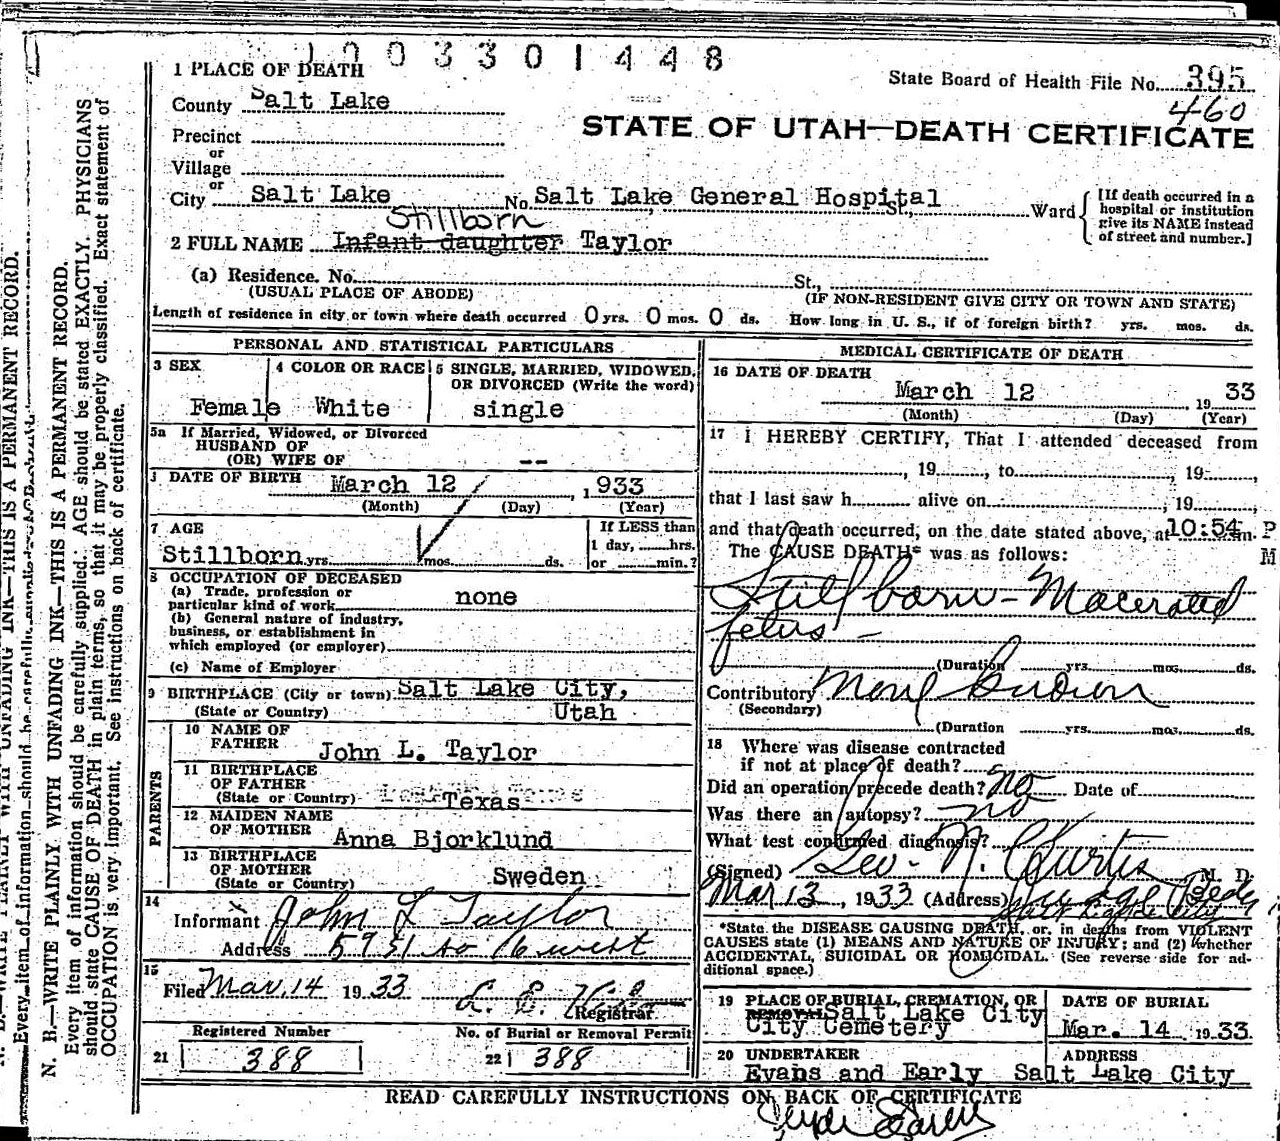 1003301448
State Board of Health File No. 395
460
STATE OF UTAH—DEATH CERTIFICATE
1 PLACE OF DEATH
County Salt Lake
Precinct
or
Village
or
City Salt Lake No. Salt Lake General Hospital St., Ward
[If death occurred in a
hospital or institution
give its NAME instead
of street and number.]
Stillborn
2 FULL NAME Infant daughter Taylor
(a) Residence. No. St.,
(USUAL PLACE OF ABODE) (IF NON-RESIDENT GIVE CITY OR TOWN AND STATE)
Length of residence in city or town where death occurred 0 yrs. 0 mos. 0 ds. How long in U. S., if of foreign birth? yrs. mos. ds.
PERSONAL AND STATISTICAL PARTICULARS
3 SEX
Female
4 COLOR OR RACE
White
5 SINGLE, MARRIED, WIDOWED,
OR DIVORCED (Write the word)
single
5a If Married, Widowed, or Divorced
HUSBAND OF
(OR) WIFE OF --
DATE OF BIRTH March 12, 1933
(Month) (Day) (Year)
7 AGE
Stillborn yrs. mos. ds.
If LESS than
1 day, hrs.
or min.?
8 OCCUPATION OF DECEASED
(a) Trade, profession or
particular kind of work none
(b) General nature of industry,
business, or establishment in
which employed (or employer)
(c) Name of Employer
9 BIRTHPLACE (City or town) Salt Lake City,
(State or Country) Utah
PARENTS
10 NAME OF
FATHER John L. Taylor
11 BIRTHPLACE
OF FATHER
(State or Country) Texas
12 MAIDEN NAME
OF MOTHER Anna Bjorklund
13 BIRTHPLACE
OF MOTHER
(State or Country) Sweden
14
Informant John L Taylor
Address 5951 so 6 west
15
Filed Mar. 14 1933 L. E.
Registrar
Registered Number
21 388
No. of Burial or Removal Permit
22 388
MEDICAL CERTIFICATE OF DEATH
16 DATE OF DEATH
March 12 1933
(Month) (Day) (Year)
17 I HEREBY CERTIFY, That I attended deceased from
, 19, to 19,
that I last saw h alive on , 19
and that death occurred, on the date stated above, at 10:54 m. P
M
The CAUSE DEATH* was as follows:
Stillborn - Macerated
fetus -
(Duration yrs. mos. ds.
Contributory None known
(Secondary)
(Duration yrs. mos. ds.
18 Where was disease contracted
if not at place of death?
Did an operation precede death? no Date of
Was there an autopsy? no
What test confirmed diagnosis?
(Signed) Leo. N. Curtis M. D.
Mar 13, 1933 (Address) Judge Bldg
Salt Lake City
*State the DISEASE CAUSING DEATH, or, in deaths from VIOLENT
CAUSES state (1) MEANS AND NATURE OF INJURY; and (2) whether
ACCIDENTAL, SUICIDAL OR HOMICIDAL. (See reverse side for ad-
ditional space.)
19 PLACE OF BURIAL, CREMATION, OR
REMOVAL Salt Lake City
City Cemetery
DATE OF BURIAL
Mar. 14 1933
20 UNDERTAKER
Evans and Early
ADDRESS
Salt Lake City
READ CAREFULLY INSTRUCTIONS ON BACK OF CERTIFICATE
N. B.—WRITE PLAINLY, WITH UNFADING INK—THIS IS A PERMANENT RECORD.
Every item of information should be carefully supplied. AGE should be stated EXACTLY. PHYSICIANS
should state CAUSE OF DEATH in plain terms, so that it may be properly classified. Exact statement of
OCCUPATION is very important. See instructions on back of certificate.